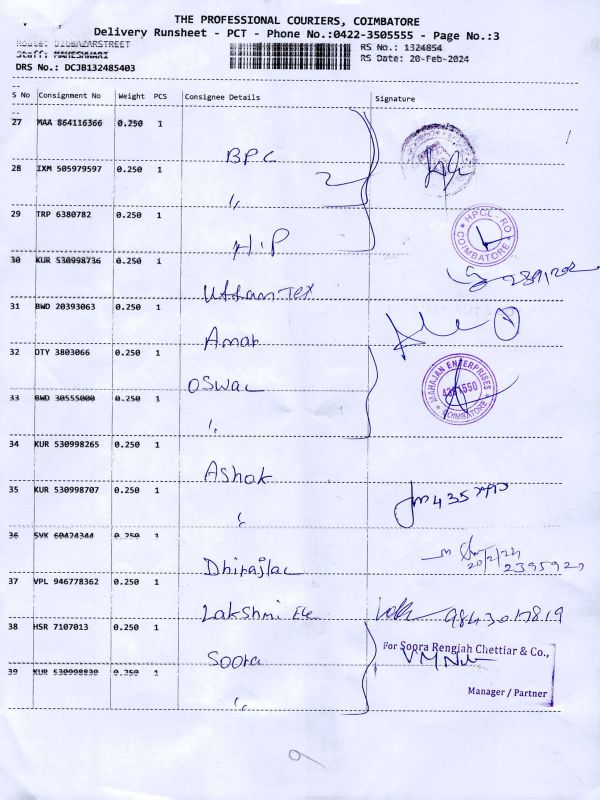 THE PROFESSIONAL COURIERS, COIMBATORE
Delivery Runsheet - PCT - Phone No.:0422-3505555 - Page No.:3
Staff: MAHESHWARI
RS No.: 1324854
RS Date: 20-Feb-2024
DRS No.: DCJB132485403
S No Consignment No Weight PCS Consignee Details Signature
27 MAA 864116366 0.250 1 BPC
28 IXM 505979597 0.250 1 "
29 TRP 6380782 0.250 1 H.P
HPCL - RO COIMBATORE
30 KUR 530998736 0.250 1 Uttam Tex
31 BWD 20393063 0.250 1 Amar
32 OTY 3803066 0.250 1 OSwal
MAHAJAN ENTERPRISES COIMBATORE
33 BWD 30555000 0.250 1 "
34 KUR 530998265 0.250 1 Ashok
35 KUR 530998707 0.250 1 "
36 SVK 60424344 0.250 1 Dhirajlal
20/2/24
2395927
37 VPL 946778362 0.250 1 Lakshmi Ele 9843017819
38 HSR 7107013 0.250 1 Soora
For Soora Rengiah Chettiar & Co.,
39 KUR 530998830 0.250 1 "
Manager / Partner
9